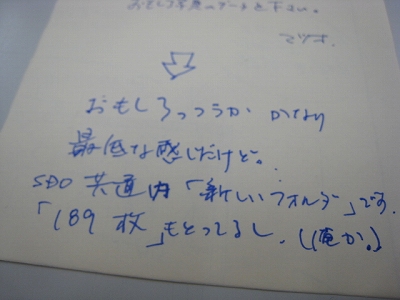 おもしろ写真のデータを下さい。
マツオ.
おもしろっつうか かなり
最低な感じだけど。
SDO 共通内「新しいフォルダ」です.
「189 枚」もとってるし. (俺か.)